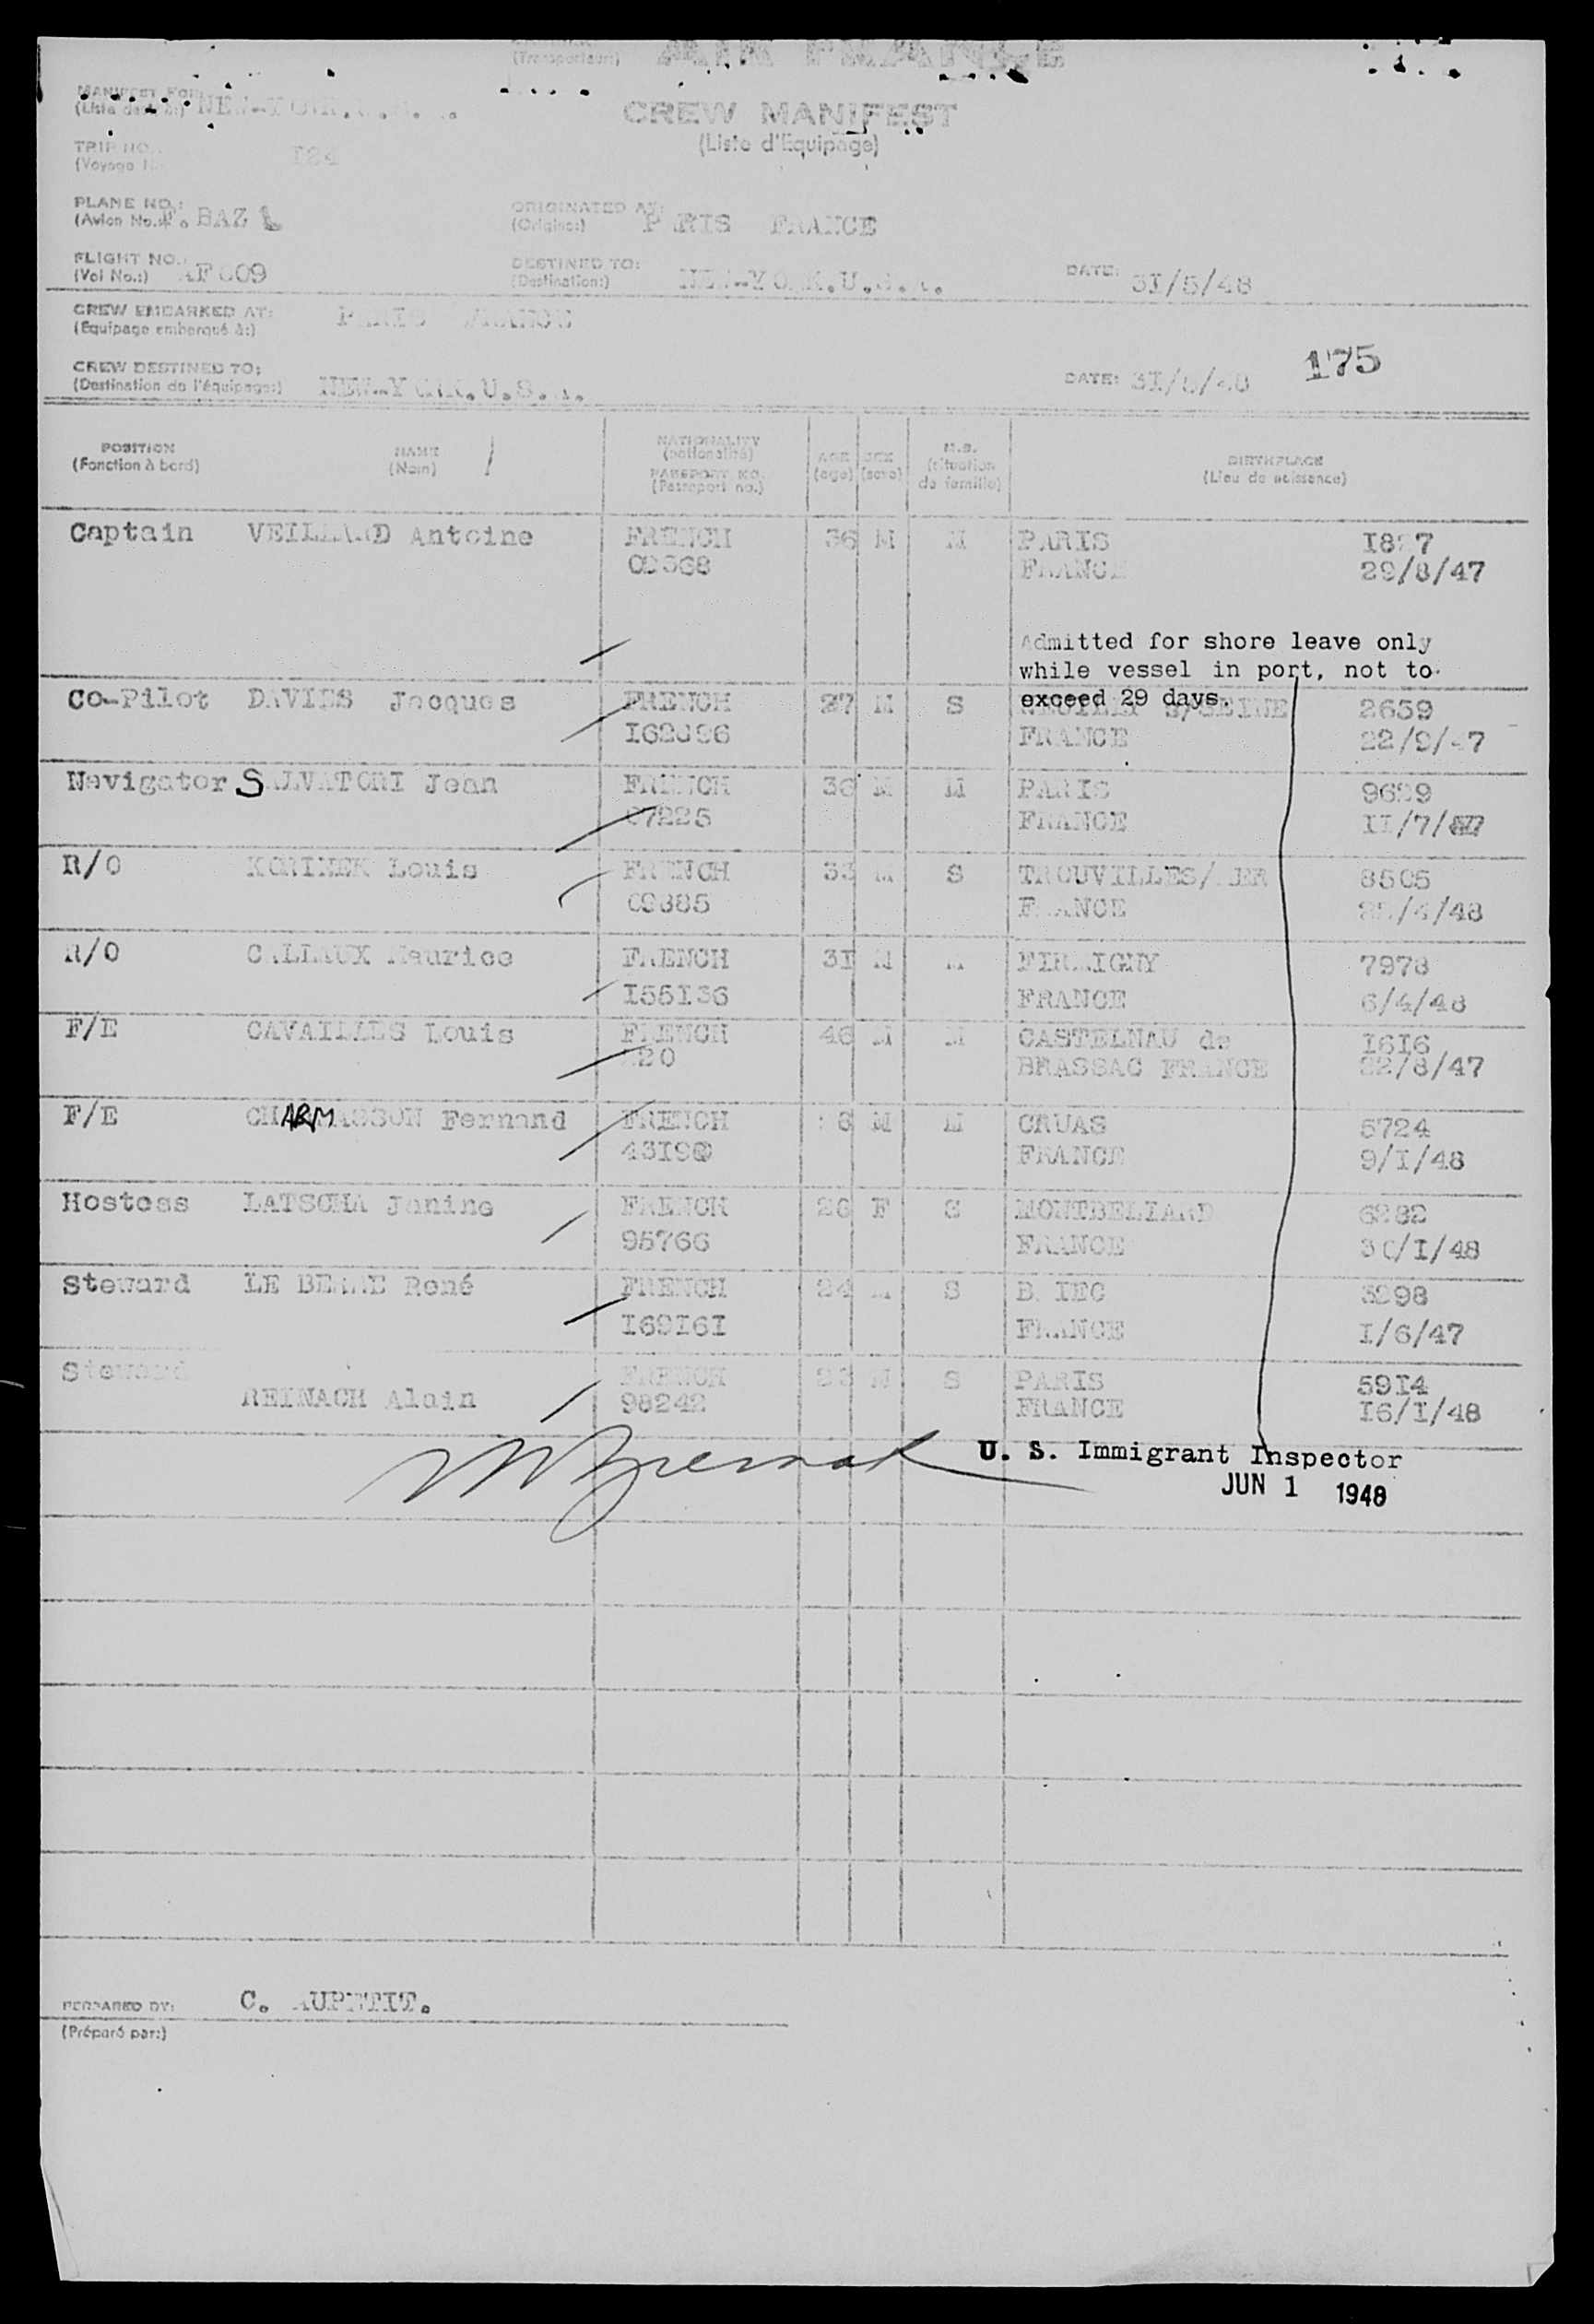 (Transporteur:) AIR FRANCE
MANIFEST FOR:
CREW MANIFEST
(Liste d'Equipage)
TRIP NO.:
PLANE NO.:
(Avion No.:) F. BAZ L
ORIGINATED AT:
(Origine:) PARIS FRANCE
FLIGHT NO.:
(Vol No.:)
DESTINED TO:
(Destination:) NEW-YORK.U.S.A.
DATE: 31/5/48
CREW EMBARKED AT: PARIS FRANCE
(Equipage embarqué à:)
175
CREW DESTINED TO:
(Destination de l'équipage:) NEW-YORK.U.S.A.
DATE: 31/5/48
POSITION
(Fonction à bord)
NAME
(Nom)
NATIONALITY
(nationalité)
PASSPORT NO.
(Passeport no.)
AGE
(age)
SEX
(sexe)
M.S.
(situation
de famille)
BIRTHPLACE
(Lieu de naissance)
Captain VEILLARD Antoine FRENCH 36 M M PARIS
FRANCE 29/8/47
Admitted for shore leave only
while vessel in port, not to
exceed 29 days.
Co-Pilot DAVIES Jacques FRENCH 27 M S S/SEINE 2659
FRANCE 22/9/47
Navigator SALVATORI Jean FRENCH 36 M M PARIS
07225 FRANCE
R/O Louis FRENCH 33 M S 8505
09885 FRANCE
R/O Maurice FRENCH 31 M M 7978
155136 FRANCE 6/4/48
F/E CAVAILLES Louis FRENCH 46 M M CASTELNAU de 1616
BRASSAC FRANCE 22/8/47
F/E CHARMASSON Fernand FRENCH M M CRUAS 5724
FRANCE 9/1/48
Hostess LATSCHA Janine FRENCH 26 F S MONTBELIARD 6282
95766 FRANCE 30/1/48
Steward LE Roné FRENCH 24 M S 3298
169161 FRANCE 1/6/47
Steward FRENCH 23 M S PARIS 5914
REINACH Alain 98242 FRANCE 16/1/48
U. S. Immigrant Inspector
JUN 1 1948
PERPARED BY: C. AUPETIT.
(Préparé par:)